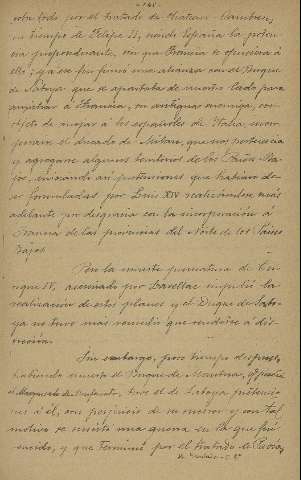 sobre todo por el tratado de Chateau-Cambresis,
en tiempo de Felipe II, siendo España la potencia
preponderante, sin que Francia se opusiera á
ello; ya se formó una alianza con el Duque
de Saboya que se apartaba de nuestro lado para
unirse á Francia, su antigua enemiga, con
objeto de arrojar á los españoles de Italia
el ducado de Milán, que nos pertenecia
y agregarse algunos territorios de los Paises Ba-
jos, iniciando así pretensiones que habían de
ser formuladas por Luis XIV realizándose más
adelante por desgracia con la incorporación á
Francia de las provincias del Norte de los Paises
Bajos.
Con la muerte prematura de Enri-
que IV, asesinado por Ravaillac impidió la
realización de estos planes y el Duque de Sabo-
ya no tuvo más remedio que rendirse á dis-
creción.
Sin embargo, poco tiempo después,
habiendo muerto el Duque de Mantua,
el Marquesado de Monferrato, tuvo el de Saboya pretensio-
nes á él, con perjuicio de su sucesor y con tal
motivo se suscitó una guerra en la que fué
vencido, y que terminó por el tratado de Pavía,